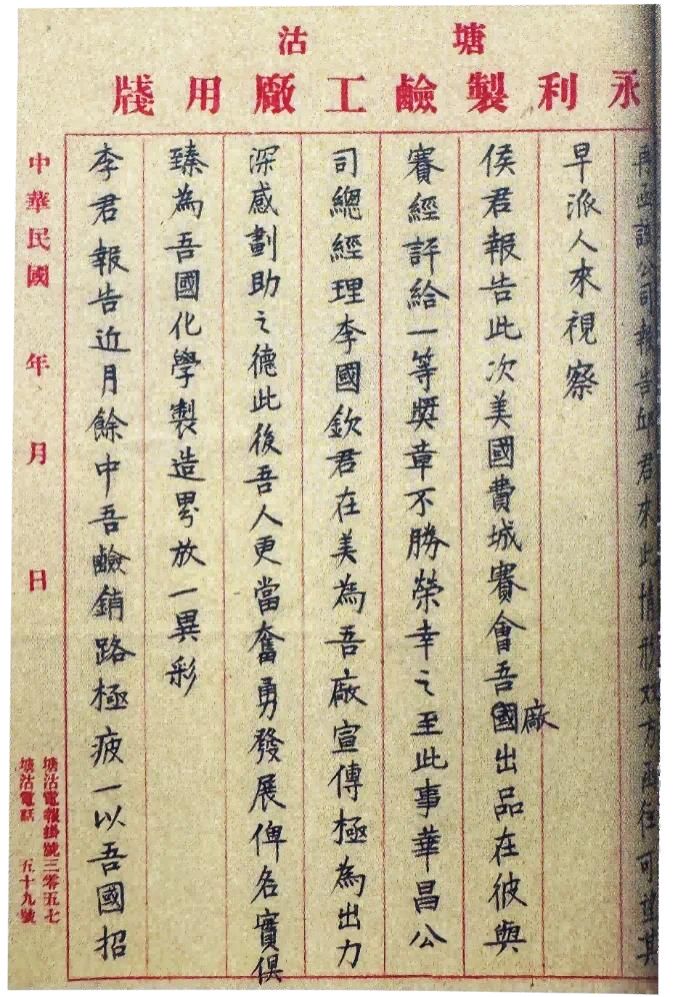 塘沽
永利製鹼工廠用牋
再函該公司報告邱君來此情形双方函往可望其
早派人來視察
侯君報告此次美國費城賽會吾廠出品在彼與
賽經評給一等奬章不勝榮幸之至此事華昌公
司總經理李國欽君在美為吾廠宣傳極為出力
深感劃助之德此後吾人更當奮勇發展俾名實俱
臻為吾國化學製造界放一異彩
李君報告近月餘中吾鹼銷路極疲一以吾國招
中華民國 年 月 日
塘沽電報掛號三零五七
塘沽電話 五十九號